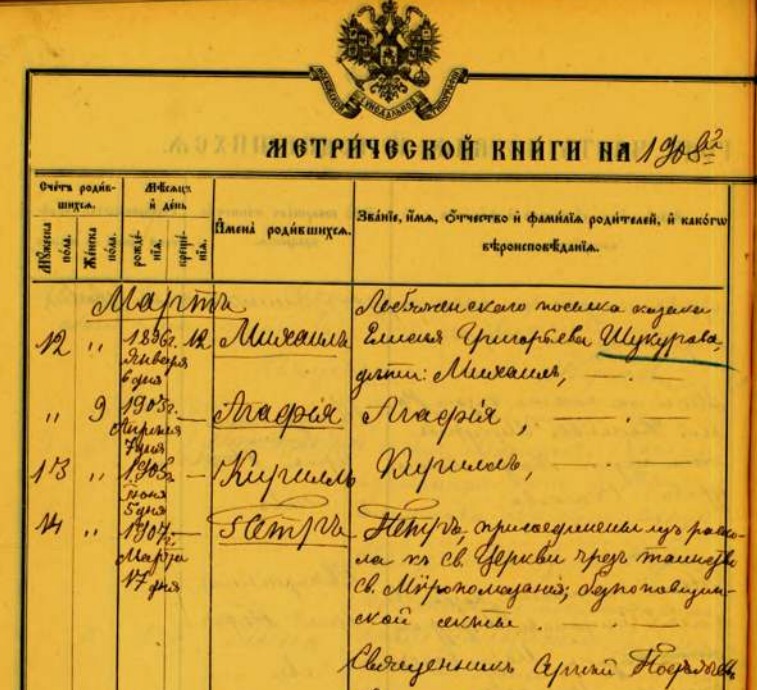 МЕТРИЧЕСКОЙ КНИГИ НА 1908й
Счетъ родив-
шихся.
Мужеска пола.
Женска пола.
Мѣсяцъ
и день
рожде-
нія.
креще-
нія.
Имена родившихся.
Званіе, имя, отчество и фамилія родителей, и какого
вѣроисповѣданія.
Мартъ
поселка казака
12 " 1896г. Января 6 дня 12 Михаилъ
Елисея Григорьева Шукурова,
дѣти: Михаилъ, — . —
" 9 1903г. Апрѣля 7 дня — Агафія
Агафія, — . —
13 " 1905г. Іюня 5 дня — Кириллъ
Кириллъ, — . —
14 " 1907г. Марта 17 дня — Петръ
Петръ, присоединены изъ раско-
ла къ св. Церкви чрезъ таинство
св. Мѵропомазанія; безпоповщин-
ской секты. — . —
Священникъ Сергій